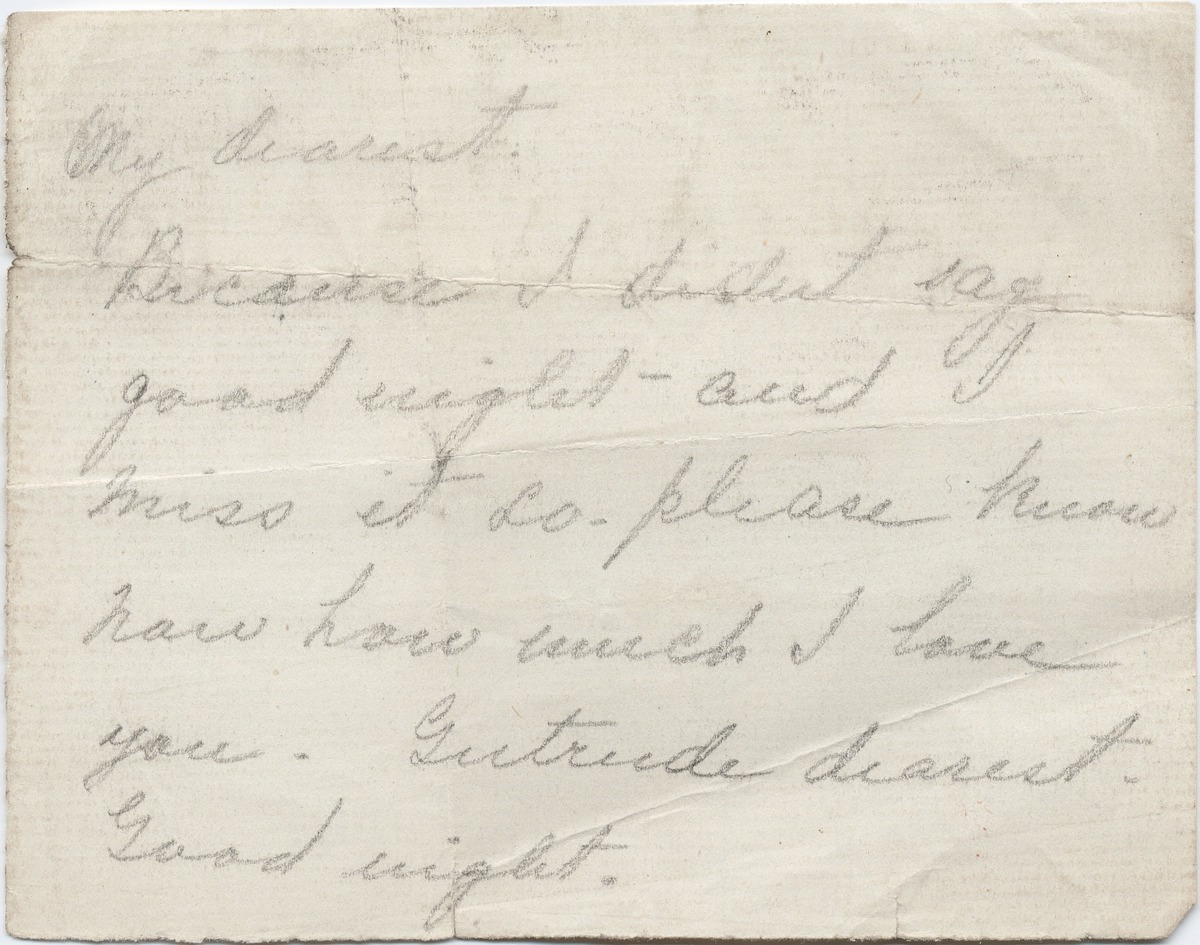 My dearest.
Because I didnt say
good night - and I
miss it so - please know
now how much I love
you - Gertrude dearest -
Good night.